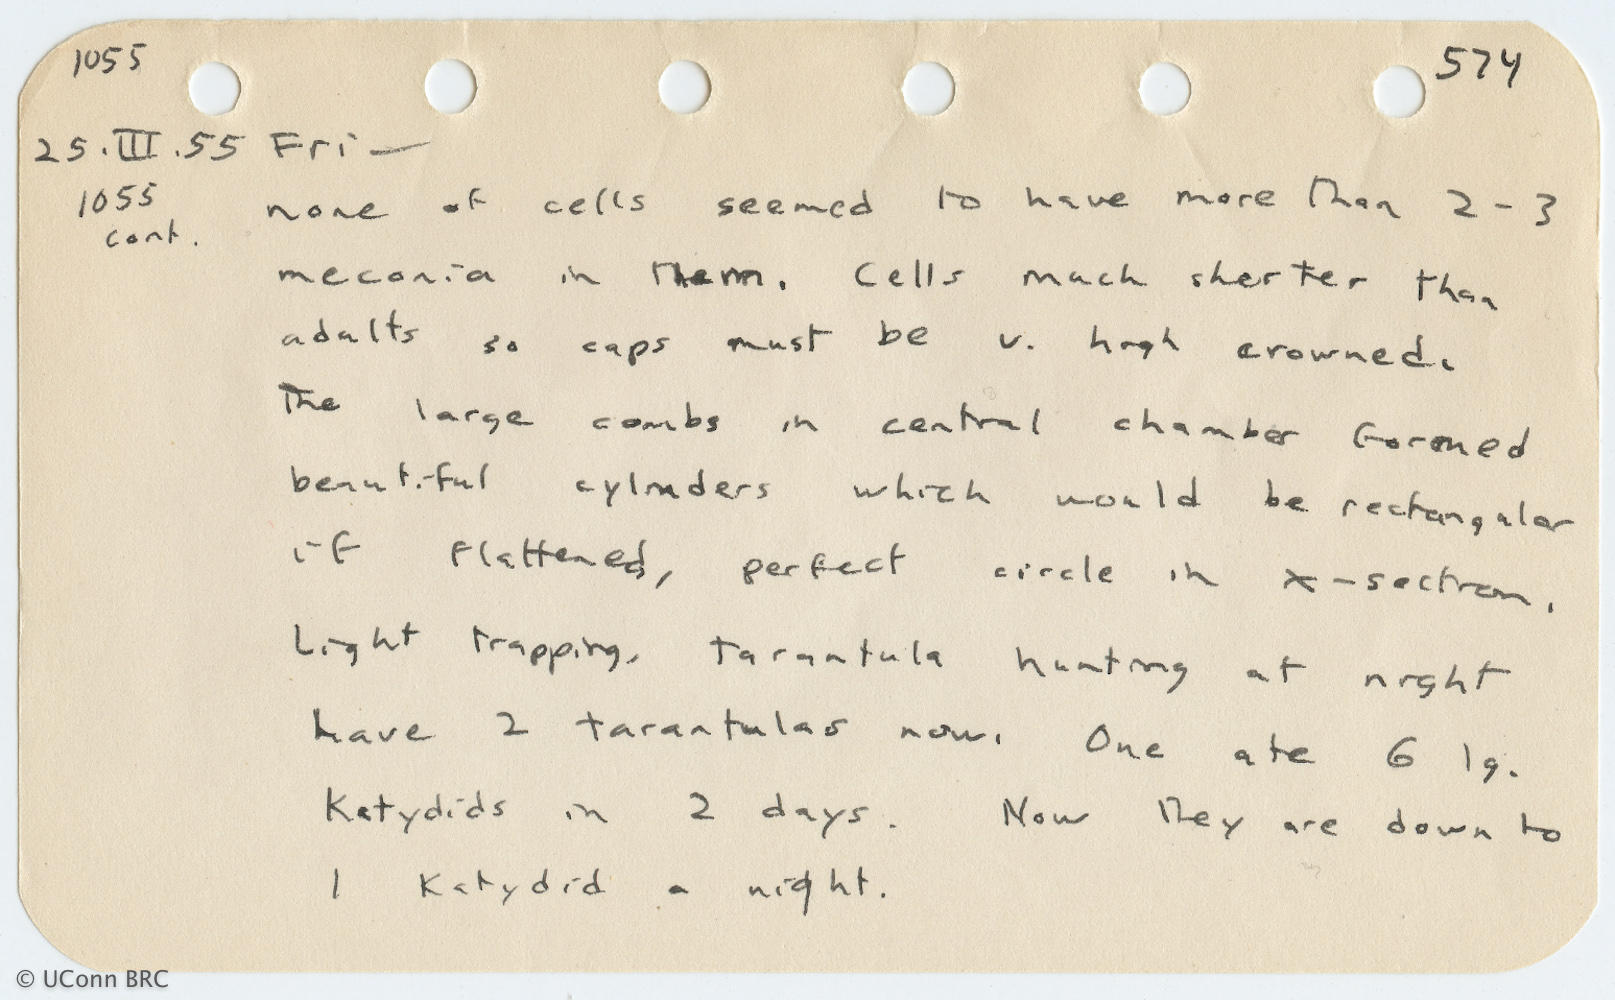 1055 574
25.III.55 Fri—
1055 none of cells seemed to have more than 2-3
cont.
meconia in them. Cells much shorter than
adults so caps must be v. high crowned.
The large combs in central chamber formed
beautiful cylinders which would be rectangular
if flattened, perfect circle in x-section.
Light trapping, tarantula hunting at night
have 2 tarantulas now. One ate 6 lg.
Katydids in 2 days. Now they are down to
1 Katydid a night.
© UConn BRC